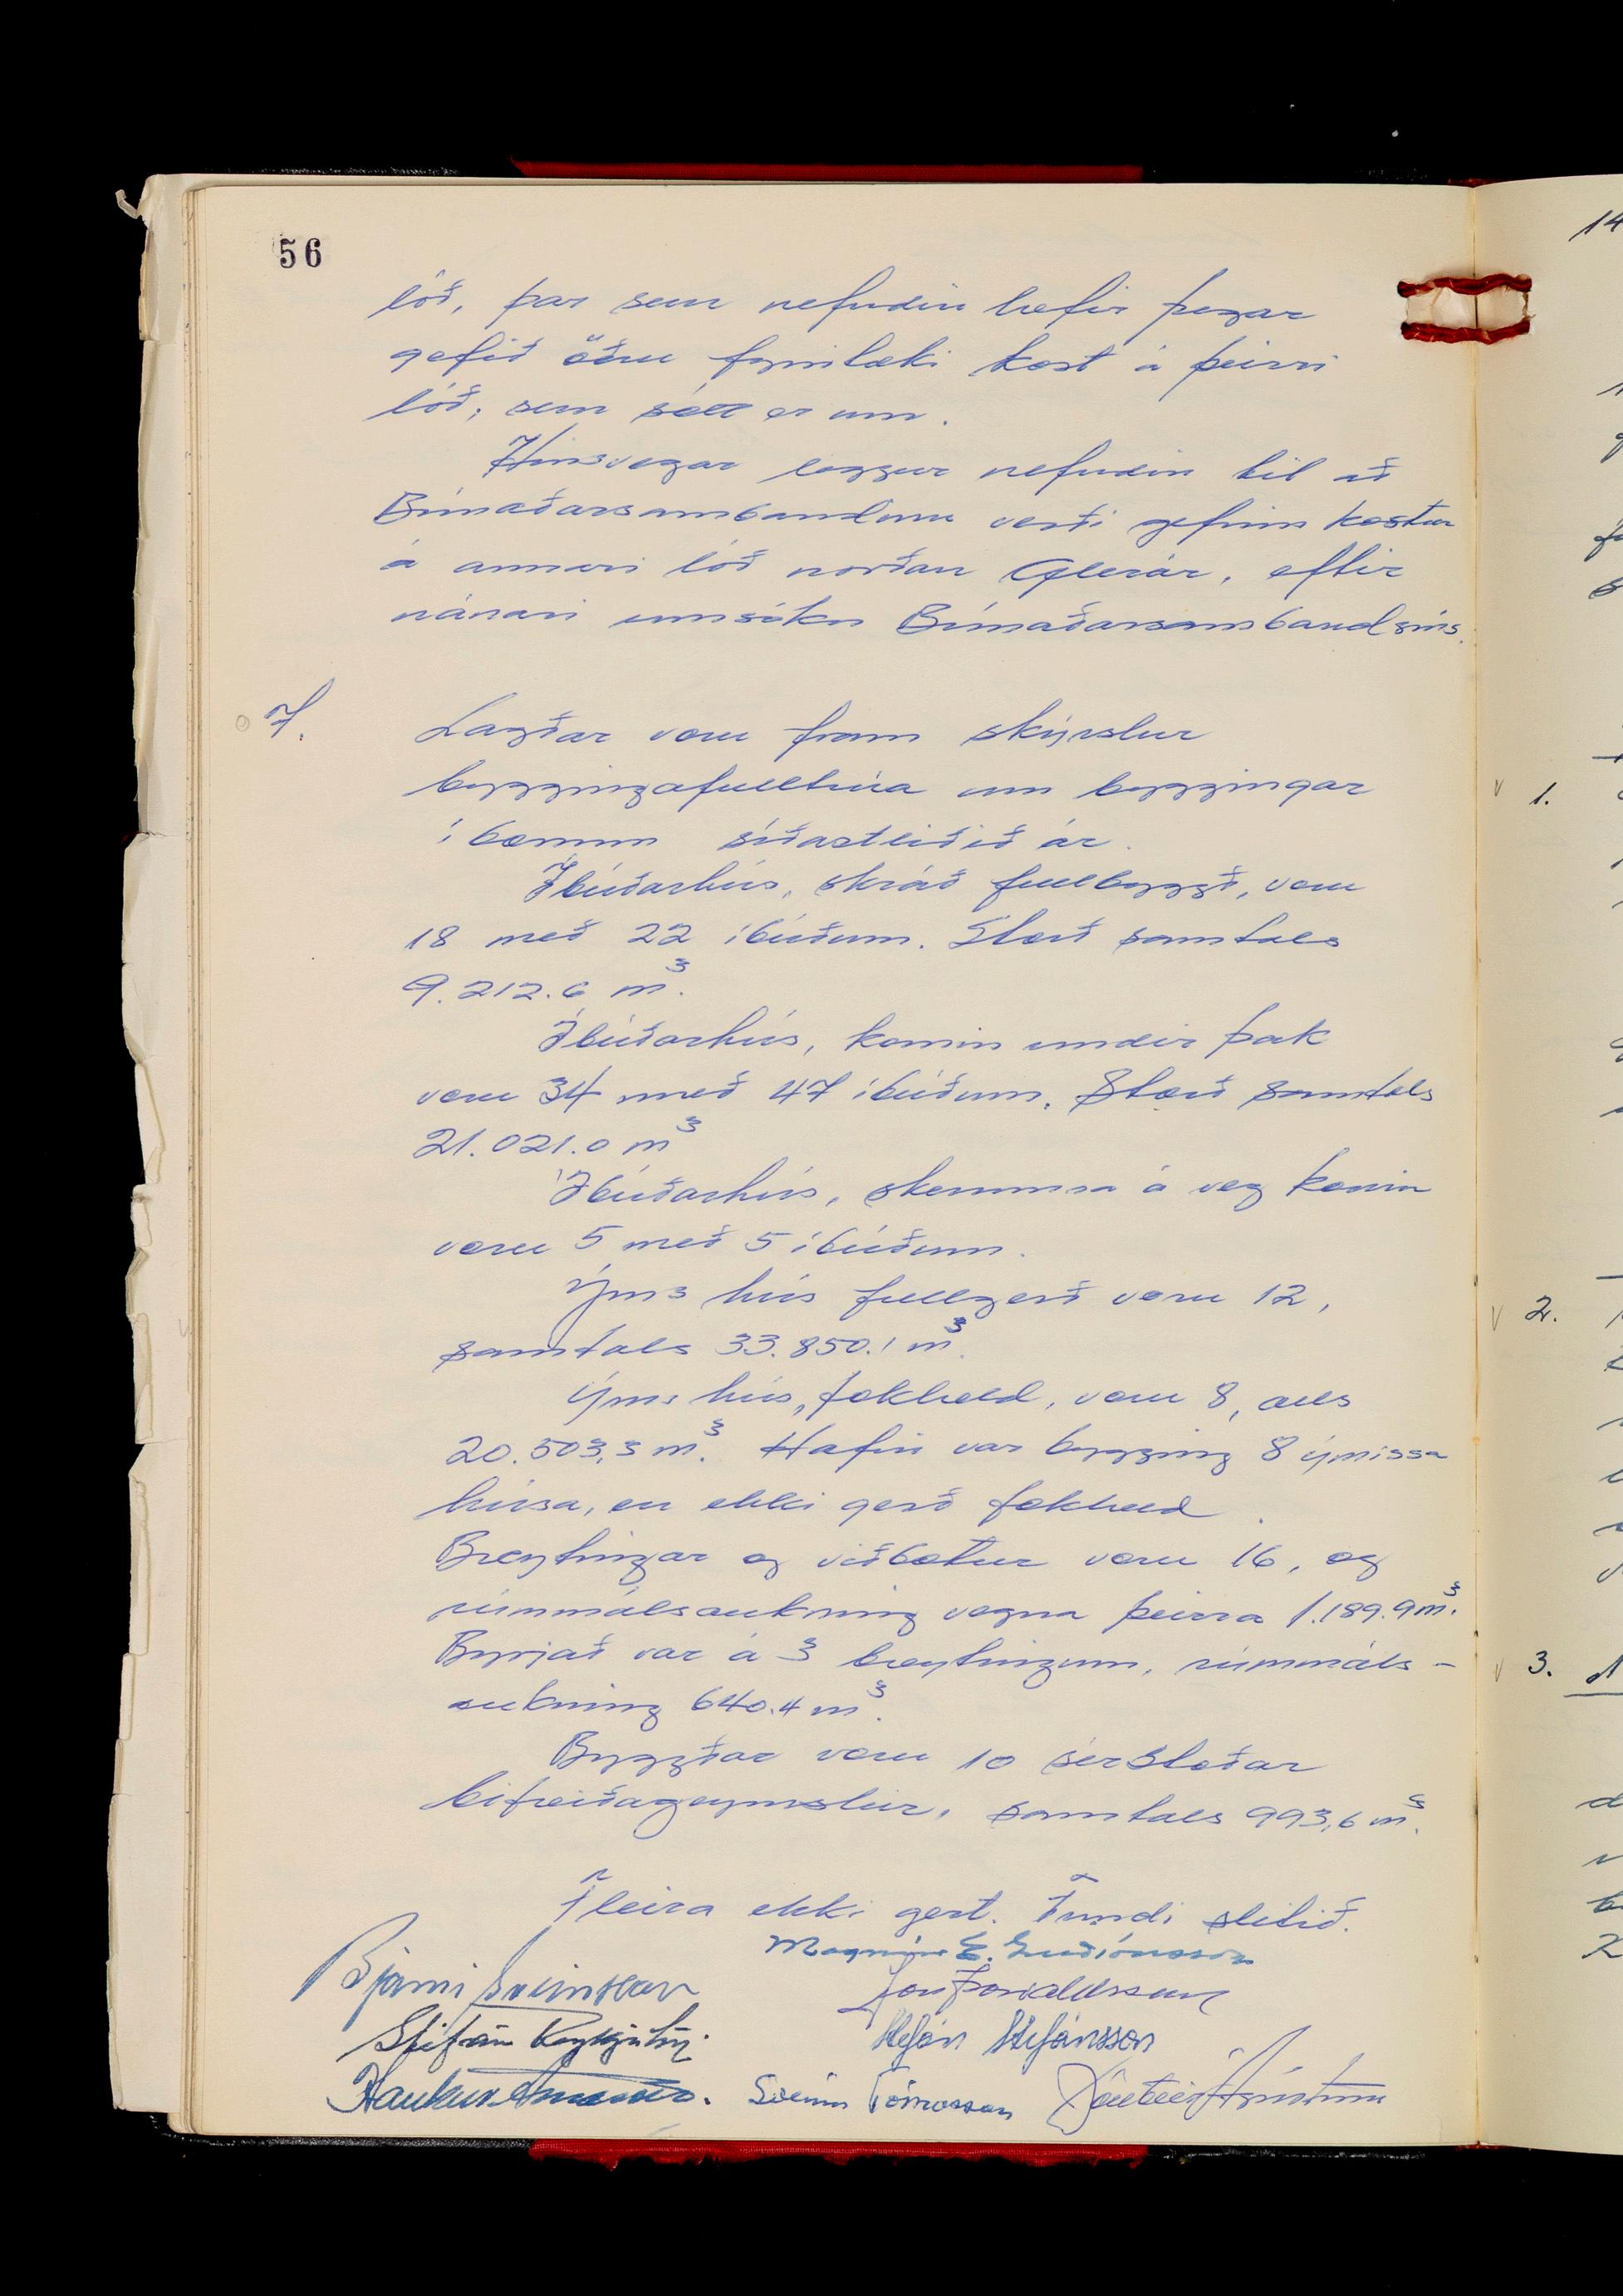 56
lóð, þar sem nefndin hefir þegar
gefið öðru fyrirtæki kost á þeirri
lóð, sem sótt er um.
Hinsvegar leggur nefndin til að
Búnaðarsambandinu verði gefinn kostur
á annari lóð norðan Glerár, eftir
nánari umsókn Búnaðarsambandsins.
7.
Lagðar voru fram skýrslur
byggingafulltrúa um byggingar
í bænum síðastliðið ár.
Íbúðarhús, skráð fullbyggð, voru
18 með 22 íbúðum. Stærð samtals
9.212.6 m³.
Íbúðarhús, komin undir þak
voru 34 með 47 íbúðum. Stærð samtals
21.021.0 m³
Íbúðarhús, skemmra á veg komin
voru 5 með 5 íbúðum.
Ýms hús fullgerð voru 12,
samtals 33.850.1 m³.
Ýms hús, fokheld, voru 8, alls
20.503,3 m³. Hafin var bygging 8 ýmissa
húsa, en ekki gerð fokheld.
Breytingar og viðbætur voru 16, og
rúmmálsaukning vegna þeirra 1.189.9 m³.
Byrjað var á 3 breytingum, rúmmáls-
aukning 640.4 m³.
Byggðar voru 10 sérstæðar
bifreiðageymslur, samtals 993,6 m³.
Fleira ekki gert. Fundi slitið.
Magnús E. Guðjónsson
Bjarni Sveinsson Jón Þorvaldsson
Stefán Reykjalín. Stefán Stefánsson
Haukur Árnason. Sveinn Tómasson
14
1.
2.
3.